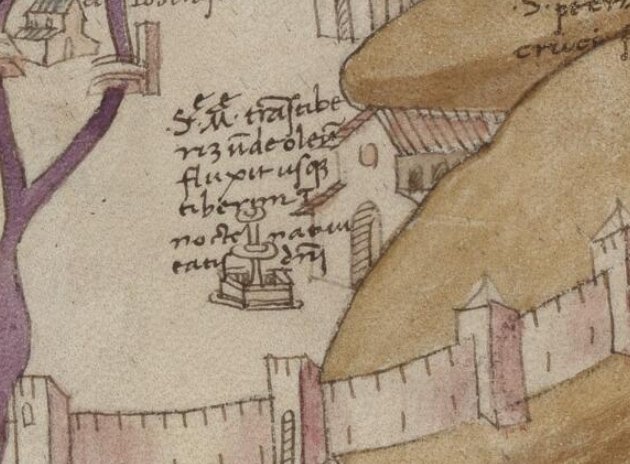 .S. petri
cruci
.Sᵉ. Mᵉ. trāstibe
riz ūde oleū
fluxit usqꝫ
tiberim I
nocte natiui
tatis dn̄i